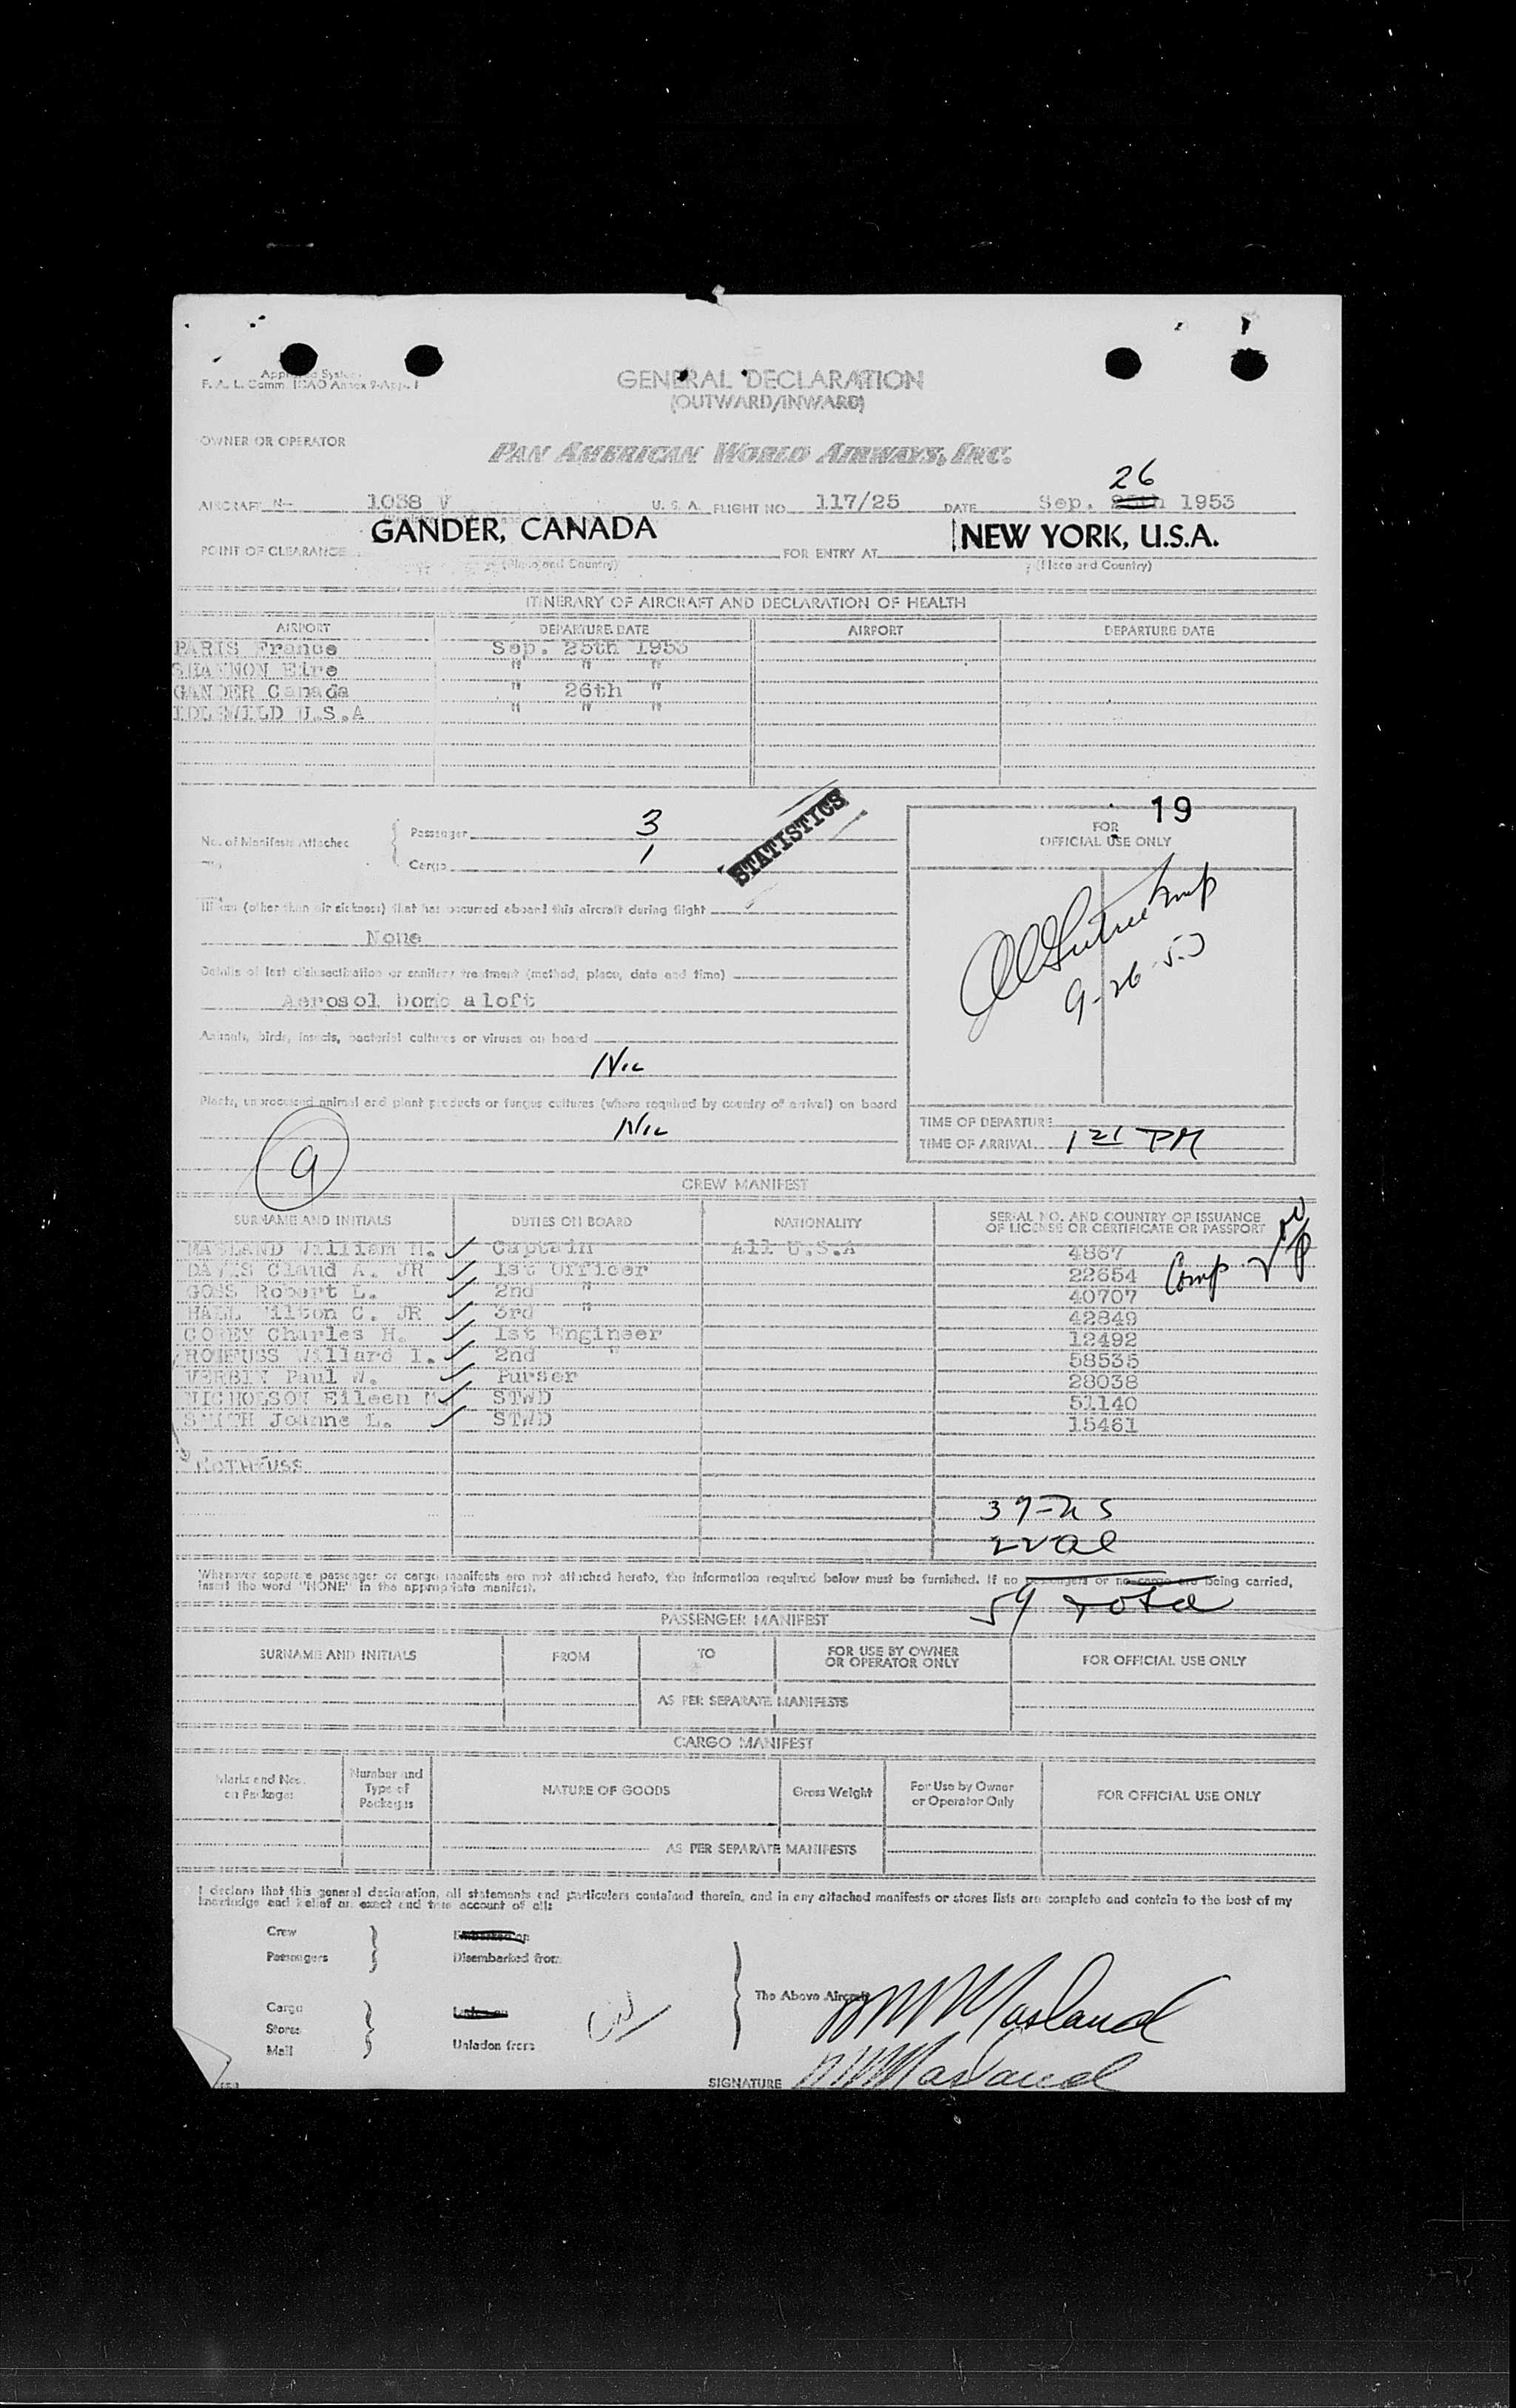 Approved System
F. A. L. Comm. ICAO Annex 9-App. 1
GENERAL DECLARATION
(OUTWARD/INWARD)
OWNER OR OPERATOR
PAN AMERICAN WORLD AIRWAYS, INC.
26
AIRCRAFT N- 1038 V U. S. A. FLIGHT NO. 117/25 DATE Sep. 25th 1953
GANDER, CANADA NEW YORK, U.S.A.
POINT OF CLEARANCE FOR ENTRY AT
(Place and Country) (Place and Country)
ITINERARY OF AIRCRAFT AND DECLARATION OF HEALTH
AIRPORT DEPARTURE DATE AIRPORT DEPARTURE DATE
PARIS France Sep. 25th 1953
SHANNON Eire " " "
GANDER Canada " 26th "
IDLEWILD U.S.A " " "
19
No. of Manifests Attached { Passenger 3
Cargo 1
STATISTICS
FOR
OFFICIAL USE ONLY
Illness (other than air sickness) that has occurred aboard this aircraft during flight
None
Details of last disinsectization or sanitary treatment (method, place, date and time)
Aerosol bomb aloft
9-26-53
Animals, birds, insects, bacterial cultures or viruses on board
Nil
Plants, unprocessed animal and plant products or fungus cultures (where required by country of arrival) on board
Nil
TIME OF DEPARTURE
TIME OF ARRIVAL 121 PM
9
CREW MANIFEST
SURNAME AND INITIALS DUTIES ON BOARD NATIONALITY SERIAL NO. AND COUNTRY OF ISSUANCE
OF LICENSE OR CERTIFICATE OR PASSPORT
MASLAND William M. ✓ Captain All U.S.A 4867
DAVIS Claud A. JR ✓ 1st Officer 22654 Comp
GOSS Robert L. ✓ 2nd " 40707
HALL Milton C. JR ✓ 3rd " 42849
COREY Charles H. ✓ 1st Engineer 12492
ROHFUSS Willard I. ✓ 2nd " 58535
VERBIN Paul W. ✓ Purser 28038
NICHOLSON Eileen M ✓ STWD 51140
SMITH Joanne L. ✓ STWD 15461
ROTHFUSS
37-US
22 al
Whenever separate passenger or cargo manifests are not attached hereto, the information required below must be furnished. If no passengers or no cargo are being carried,
insert the word "NONE" in the appropriate manifest.
59 total
PASSENGER MANIFEST
SURNAME AND INITIALS FROM TO FOR USE BY OWNER
OR OPERATOR ONLY FOR OFFICIAL USE ONLY
AS PER SEPARATE MANIFESTS
CARGO MANIFEST
Marks and Nos.
on Packages Number and
Type of
Packages NATURE OF GOODS Gross Weight For Use by Owner
or Operator Only FOR OFFICIAL USE ONLY
AS PER SEPARATE MANIFESTS
I declare that this general declaration, all statements and particulars contained therein, and in any attached manifests or stores lists are complete and contain to the best of my
knowledge and belief an exact and true account of all:
Crew Embarked on
Passengers Disembarked from
The Above Aircraft
Cargo Laden on
Stores
Mail Unladen from
WM Masland
SIGNATURE WM Masland